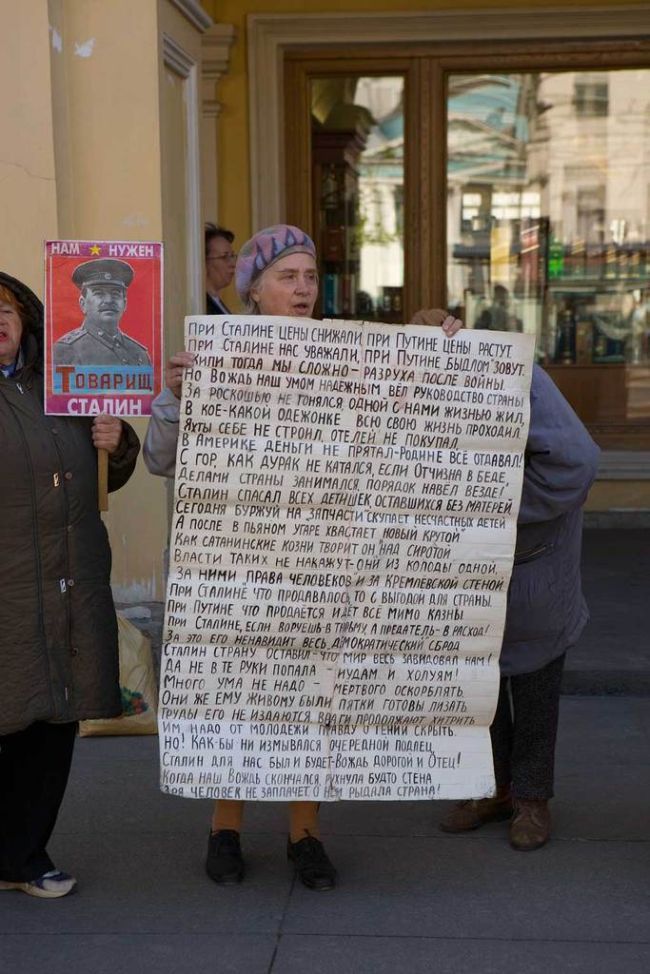 НАМ НУЖЕН
ТОВАРИЩ
СТАЛИН
ПРИ СТАЛИНЕ ЦЕНЫ СНИЖАЛИ, ПРИ ПУТИНЕ ЦЕНЫ РАСТУТ.
ПРИ СТАЛИНЕ НАС УВАЖАЛИ, ПРИ ПУТИНЕ „БЫДЛОМ" ЗОВУТ.
ЖИЛИ ТОГДА МЫ СЛОЖНО – РАЗРУХА ПОСЛЕ ВОЙНЫ.
НО ВОЖДЬ НАШ УМОМ НАДЕЖНЫМ ВЁЛ РУКОВОДСТВО СТРАНЫ
ЗА РОСКОШЬЮ НЕ ГОНЯЛСЯ, ОДНОЙ С НАМИ ЖИЗНЬЮ ЖИЛ,
В КОЕ-КАКОЙ ОДЕЖОНКЕ ВСЮ СВОЮ ЖИЗНЬ ПРОХОДИЛ.
ЯХТЫ СЕБЕ НЕ СТРОИЛ, ОТЕЛЕЙ НЕ ПОКУПАЛ,
В АМЕРИКЕ ДЕНЬГИ НЕ ПРЯТАЛ-РОДИНЕ ВСЁ ОТДАВАЛ!
С ГОР, КАК ДУРАК НЕ КАТАЛСЯ, ЕСЛИ ОТЧИЗНА В БЕДЕ,
ДЕЛАМИ СТРАНЫ ЗАНИМАЛСЯ, ПОРЯДОК НАВЁЛ ВЕЗДЕ!
СТАЛИН СПАСАЛ ВСЕХ ДЕТИШЕК, ОСТАВШИХСЯ БЕЗ МАТЕРЕЙ
СЕГОДНЯ БУРЖУЙ НА ЗАПЧАСТИ СКУПАЕТ НЕСЧАСТНЫХ ДЕТЕЙ
А ПОСЛЕ В ПЬЯНОМ УГАРЕ ХВАСТАЕТ НОВЫЙ „КРУТОЙ"
КАК САТАНИНСКИЕ КОЗНИ ТВОРИТ ОН НАД СИРОТОЙ
ВЛАСТИ ТАКИХ НЕ НАКАЖУТ-ОНИ ИЗ КОЛОДЫ ОДНОЙ,
ЗА НИМИ „ПРАВА ЧЕЛОВЕКОВ" И ЗА КРЕМЛЕВСКОЙ СТЕНОЙ
ПРИ СТАЛИНЕ ЧТО ПРОДАВАЛОСЬ, ТО С ВЫГОДОЙ ДЛЯ СТРАНЫ,
ПРИ ПУТИНЕ ЧТО ПРОДАЁТСЯ ИДЕТ ВСЁ МИМО КАЗНЫ
ПРИ СТАЛИНЕ, ЕСЛИ ВОРУЕШЬ-В ТЮРЬМУ, А ПРЕДАТЕЛЬ-В РАСХОД!
ЗА ЭТО ЕГО НЕНАВИДИТ ВЕСЬ ДЕМОКРАТИЧЕСКИЙ СБРОД
СТАЛИН СТРАНУ ОСТАВИЛ-ЧТО МИР ВЕСЬ ЗАВИДОВАЛ НАМ!
ДА НЕ В ТЕ РУКИ ПОПАЛА – ИУДАМ И ХОЛУЯМ!
МНОГО УМА НЕ НАДО – МЕРТВОГО ОСКОРБЛЯТЬ.
ОНИ ЖЕ ЕМУ ЖИВОМУ БЫЛИ ПЯТКИ ГОТОВЫ ЛИЗАТЬ
ТРУДЫ ЕГО НЕ ИЗДАЮТСЯ, ВРАГИ ПРОДОЛЖАЮТ ХИТРИТЬ
ИМ НАДО ОТ МОЛОДЕЖИ ПРАВДУ О ГЕНИИ СКРЫТЬ.
НО! КАК-БЫ НИ ИЗМЫВАЛСЯ ОЧЕРЕДНОЙ ПОДЛЕЦ,
СТАЛИН ДЛЯ НАС БЫЛ И БУДЕТ-ВОЖДЬ ДОРОГОЙ И ОТЕЦ!
КОГДА НАШ ВОЖДЬ СКОНЧАЛСЯ, РУХНУЛА БУДТО СТЕНА
ЗРЯ ЧЕЛОВЕК НЕ ЗАПЛАЧЕТ, О НЕМ РЫДАЛА СТРАНА!